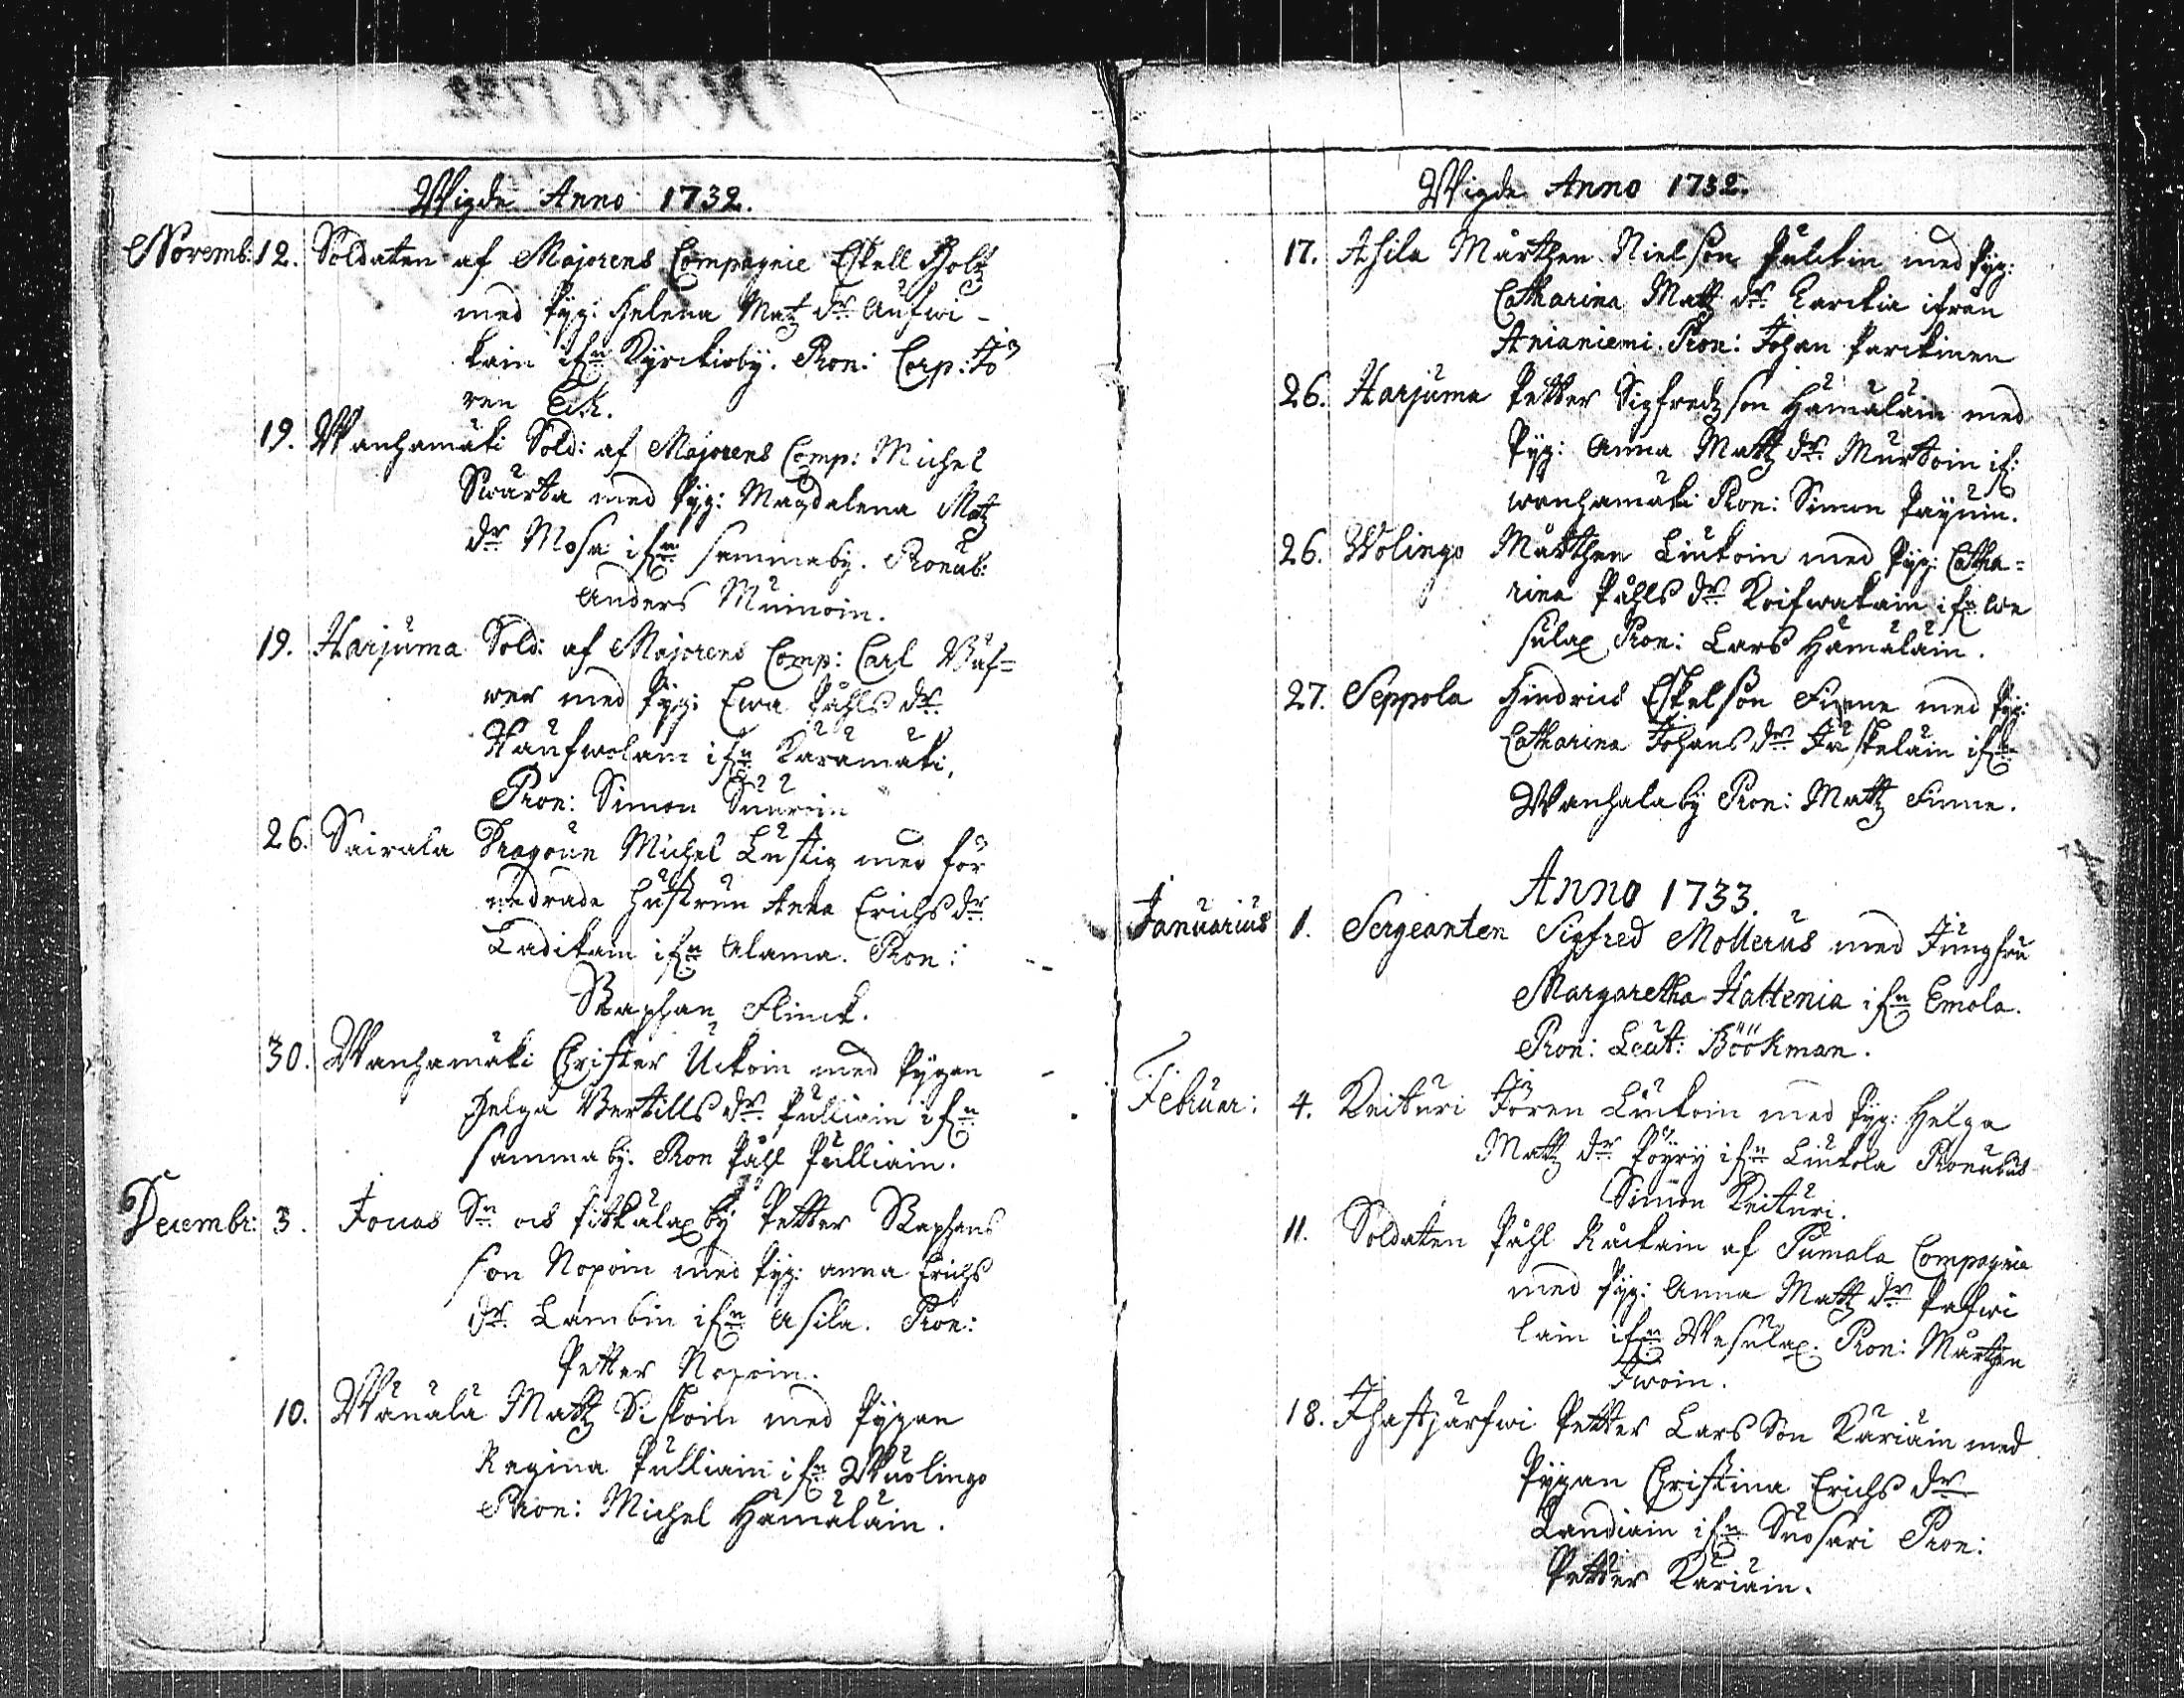 Wigde Anno 1732.
Novemb: 12. Soldaten af Majorens Compagnie Eskell Holtz
med Pyg: Helena Matz dr Aufwi-
kain ifrn Kyrckioby. Pron: Corp: Jö
ren Eck.
19. Wanhamäki Sold: af Majorens Comp: Michel
Swarta med Pyg: Magdalena Matz
dr Mosa ifrn sammaby. Pronub:
Anders Muinoin.
19. Harjuma Sold: af Majorens Comp: Carl
wer med Pyg: Ewa Påhls dr
ifrn Karamäki,
Pron: Simon
26. Sairala Dragoun Michel Lustig med för
hustrun Anna Erichs dr
Ladikain ifrn Alama. Pron:
Staphan Flinck.
30. Wanhamäki Christer Uckoin med Pygan
Helga Bertills dr Pulliain ifrn
samma by. Pron Påhl Pulliain.
Decembr: 3. Jonas Sn ocs Pitkälax by Petter Staphans
son Nopoin med Pyg: Anna Erichs
dr Lambin ifrn Asila. Pron:
Petter Nopoin.
10. Wänälä Mattz Siskoin med Pygan
Regina Pulliain ifrn Wuolingo
Pron: Michel Hämäläin.
Wigde Anno 1732.
17. Asila Mårthen Nielson Pulckin med Pyg:
Catharina Mattz dr Larckia ifrån
Anianiemi. Pron: Johan Parckinen
26. Harjuma Petter Sigfredzson Hämäläin med
Pyg: Anna Mattz dr Murtoin if:
wanhamäki Pron: Simon Paÿnin.
26. Wolingo Mårthen Liukoin med Pyg: Catha=
rina Påhls dr Koifwakain ifrn We
sulax Pron: Lars Hämäläin.
27. Seppola Hindrich Eskelson Finne med Pyg:
Catharina Johans dr Jäskeläin ifrn
Wanhala by Pron: Mattz Finne.
Anno 1733.
Januarius 1. Sergeanten Sigfred Mollerus med Jungfru
Margaretha Hattenia ifrn Emola.
Pron: Leut: Böökman.
Februar: 4. Keituri Jören Liukoin med Pyg: Helga
Mattz dr Pöyry ifrn Liukola Pronubus
Simon Keituri.
11. Soldaten Påhl Räckain af Pumala Compagnie
med Pyg: Anna Mattz dr Pafwi
lain ifrn Wesulax. Pron: Mårthen
Iwoin.
18. Ihastjärfwi Petter Larsson Käriäin med
Pygan Christina Erichs dr
Landiain ifrn Suosari Pron:
Petter Käriäin.